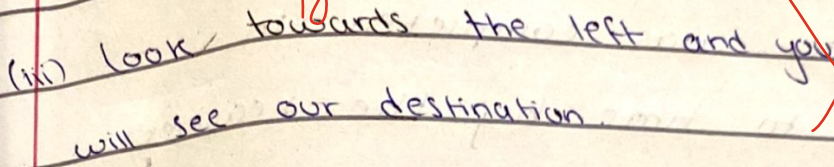 (iii) look towards the left and you
will see our destination.